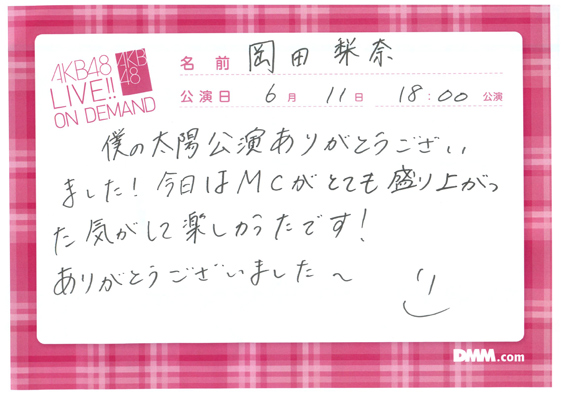 AKB48
LIVE!!
ON DEMAND
AKB
48
名前 岡田梨奈
公演日 6月 11日 18:00 公演
僕の太陽公演ありがとうござい
ました！今日はMCがとても盛り上がっ
た気がして楽しかったです！
ありがとうございました〜
DMM.com